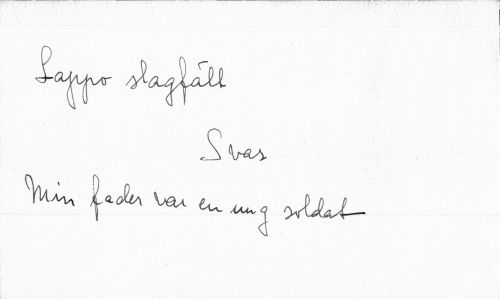 Lappo slagfält
Svar
Min fader var en ung soldat